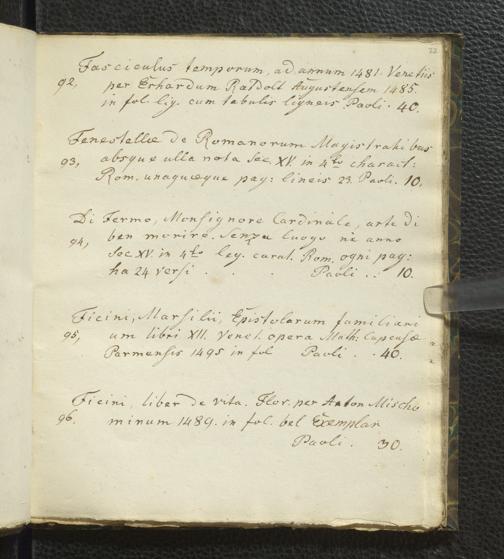 22
Fasciculus temporum, ad annum 1481. Venetiis
92, per Erhardum Ratdolt Augustensem 1485.
in fol. lig. cum tabulis ligneis Paoli . 40.
Fenestellæ de Romanorum Magistratibus
93, absque ulla nota Sec. XV. in 4to charact:
Rom. unaquæque pag: lineis 23. Paoli. 10.
Di Fermo, Monsignore Cardinale, arte di
94, ben morire. Senza luogo nè anno
Sec XV. in 4to leg. carat. Rom. ogni pag:
ha 24 versi . . Paoli . . 10.
Ficini, Marsilii, Epistolarum familiari
95, um libri XII. Venet. opera Math: Capcasæ
Parmensis 1495 in fol Paoli . . 40.
Ficini, liber de vita. Flor. per Anton Mischo
96. minum 1489. in fol. bel Exemplar
Paoli . 30.